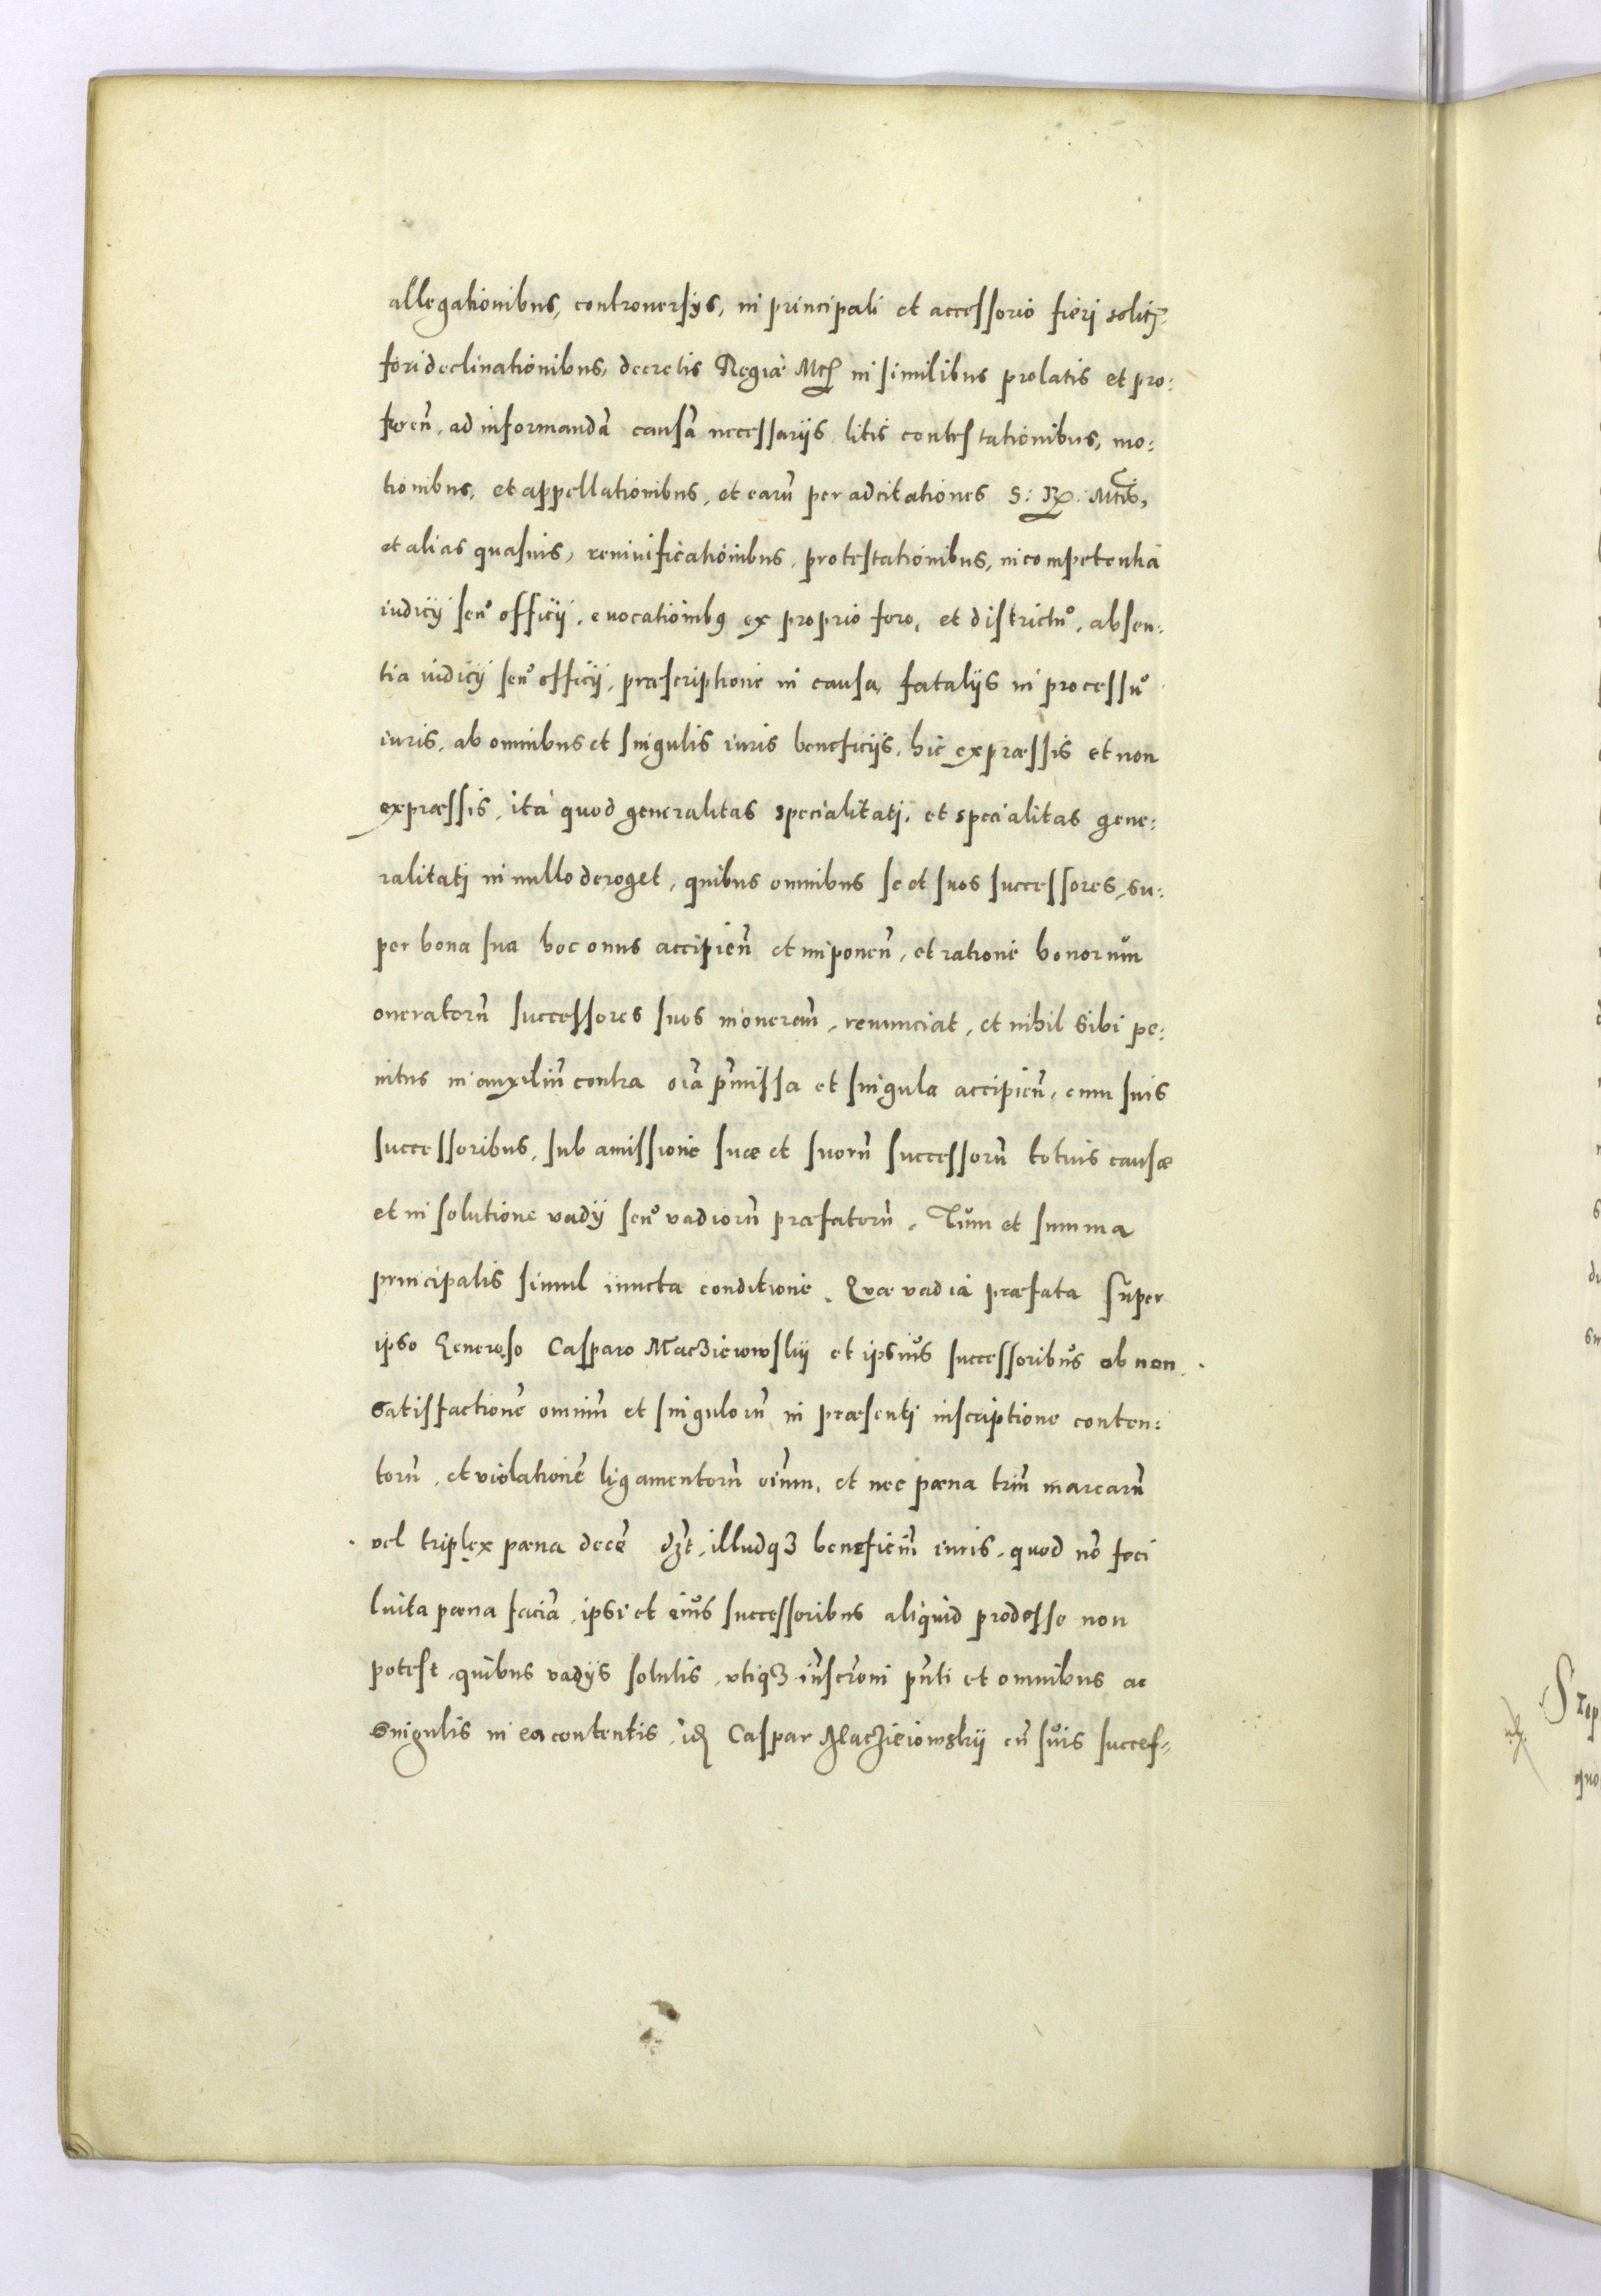 allegationibus, controuersijs, in principali et accessorio fieri solitis
fori declinationibus, decretis Regiae Mtis in similibus prolatis et pro:
feren̄, ad informandā causā necessarijs litis contestationibus, mo:
tionibus, et appellationibus, et earū per adcitationes S: R: Mtis,
et alias quasuis, reuiuificationibus, protestationibus, incompetentia
iudicij seu officij, euocationibꝰ ex proprio foro, et districtu, absen:
tia iudicij seu officij, praescriptione in causa, fatalijs in processu
iuris, ab omnibus et singulis iuris beneficijs, hic expraessis et non
expraessis, ita quod generalitas specialitati, et specialitas gene:
ralitati in nullo deroget, quibus omnibus se et suos successores, su:
per bona sua hoc onus accipien̄ et imponen̄, et ratione bonorum
oneratorū successores suos in oneran̄, renunciat, et nihil sibi pe:
nitus in auxiliū contra oīa p̄missa et singula accipien̄, cum suis
successoribus, sub amissione suae et suorū successorū totius causae
et in solutione vadij seu vadiorū praefatorū. Tum et summa
principalis simul iuncta conditione. Quae vadia praefata super
ipso Generoso Casparo Maczieiowskij et ipsius successoribus ob non
satisfactionē omniū et singulorū in praesenti inscriptione conten:
torū, et violationē ligamentorū oīnm, et nec paena triū marcarū
vel triplex paena decē dʒt, illudqʒ beneficiū iuris, quod nō feci
luita paena faciā, ipsi et eius successoribus aliquid prodesse non
potest, quibus vadijs solutis, vtiqʒ inscr̄oni pn̄ti et omnibus ac
singulis in ea contentis, idē Caspar Macziejowskij cū suis succes=
Srop
quo